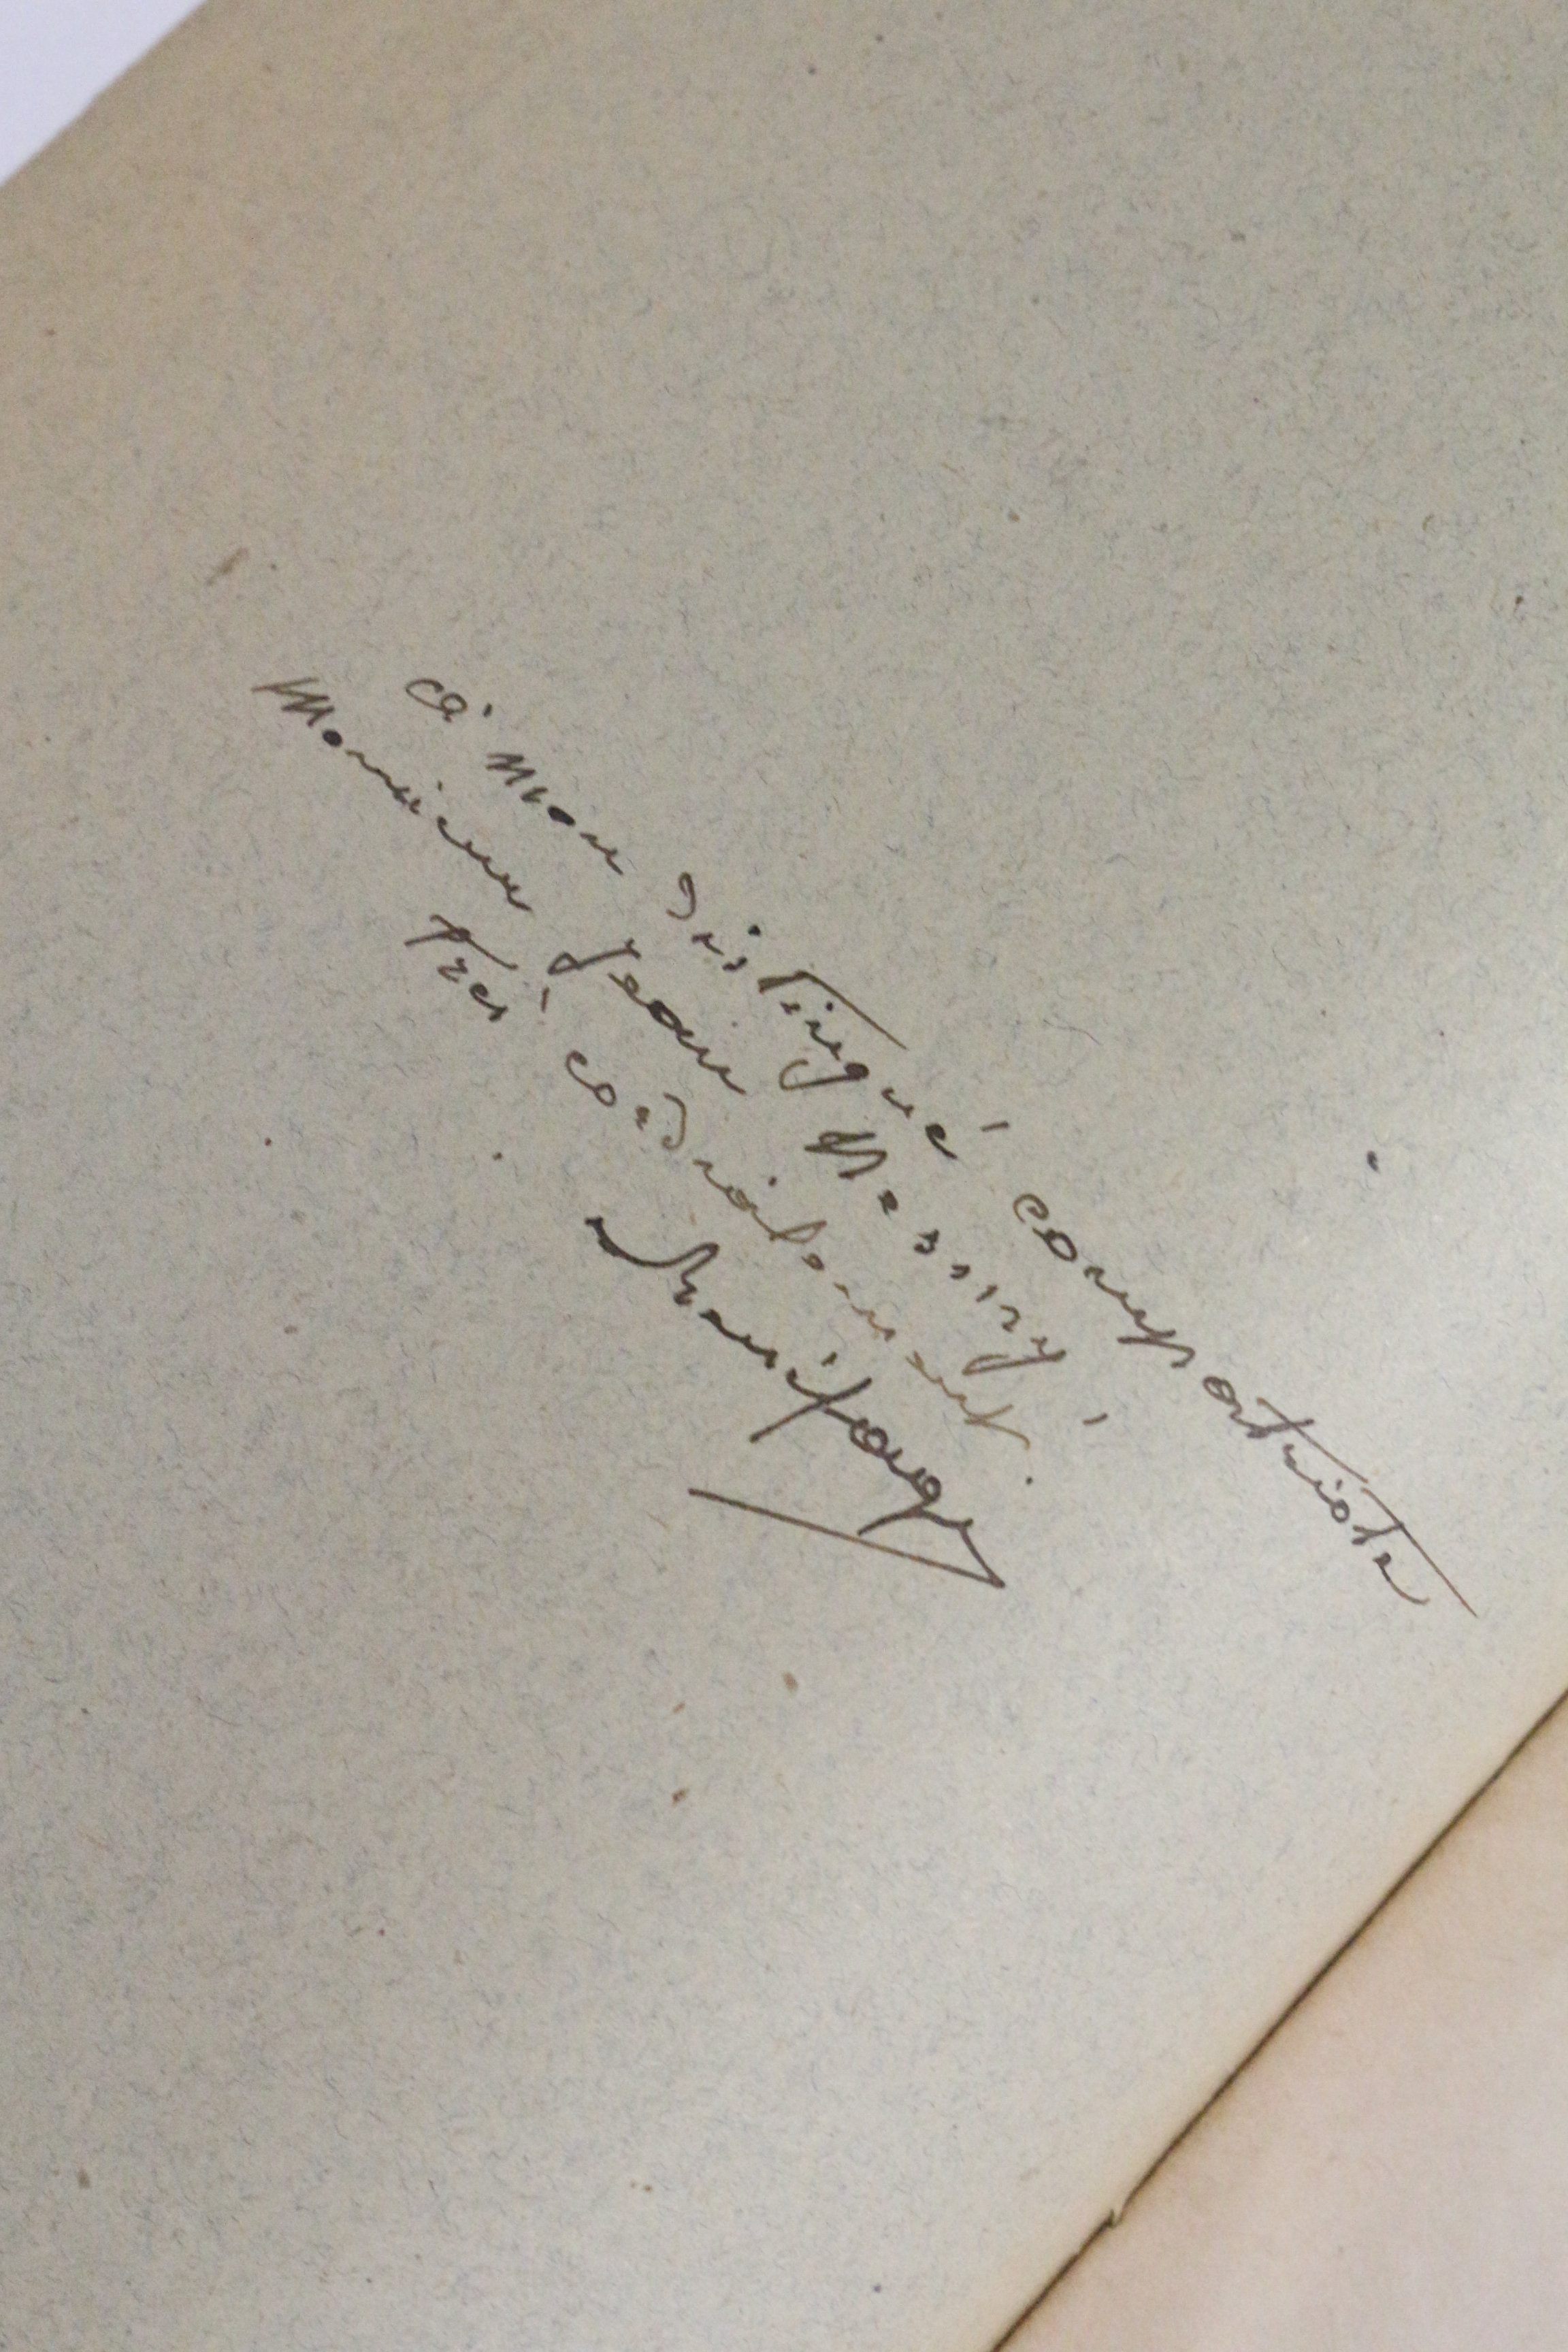 à mon distingué compatriote
Monsieur Jean
Très cordialement.